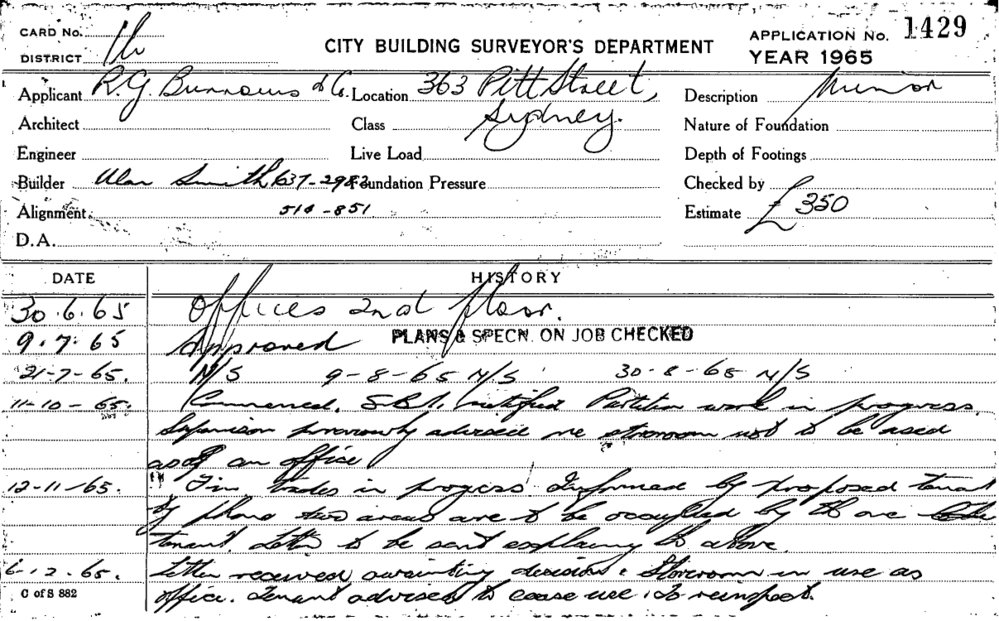 CARD No.
DISTRICT
CITY BUILDING SURVEYOR'S DEPARTMENT
APPLICATION No. 1429
YEAR 1965
Applicant R.G. Burrows & Co. Location 363 Pitt Street,
Sydney.
Description Minor
Architect Class Nature of Foundation
Engineer Live Load Depth of Footings
Builder Alan Smith 637-2982 Foundation Pressure Checked by
Alignment 514-851 Estimate £350
D.A.
DATE HISTORY
30.6.65 Offices 2nd floor.
9.7.65 Approved PLANS & SPECN. ON JOB CHECKED
21-7-65. N/S 9-8-65 N/S 30-8-65 N/S
11-10-65. Commenced. S.B.I. notified Partition work in progress.
previously advised me storeroom not to be used
as an office
12-11-65. Fin trades in progress. Informed by proposed tenant
by phone two areas are to be occupied by the one
tenant. Letter to be sent explaining the above.
6-12-65. Letter received awaiting decision. Storeroom in use as
C of S 882 office. Tenant advised to cease use. To reinspect.